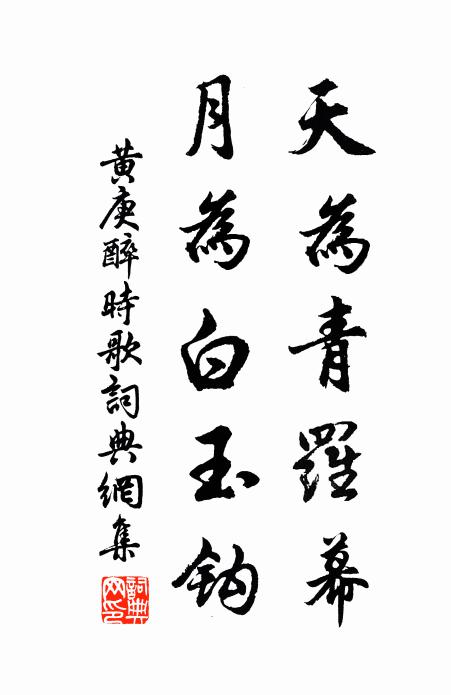 天為青羅幕
月為白玉鈎
黃庚醉時歌詞典網集
詞典网印